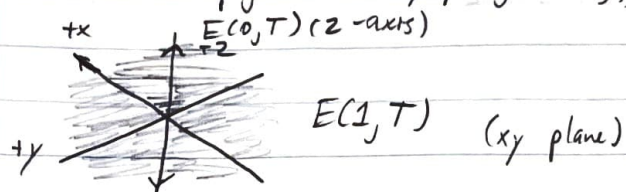 E(0,T) (z-axis)
+x
+z
E(1,T) (xy plane)
+y